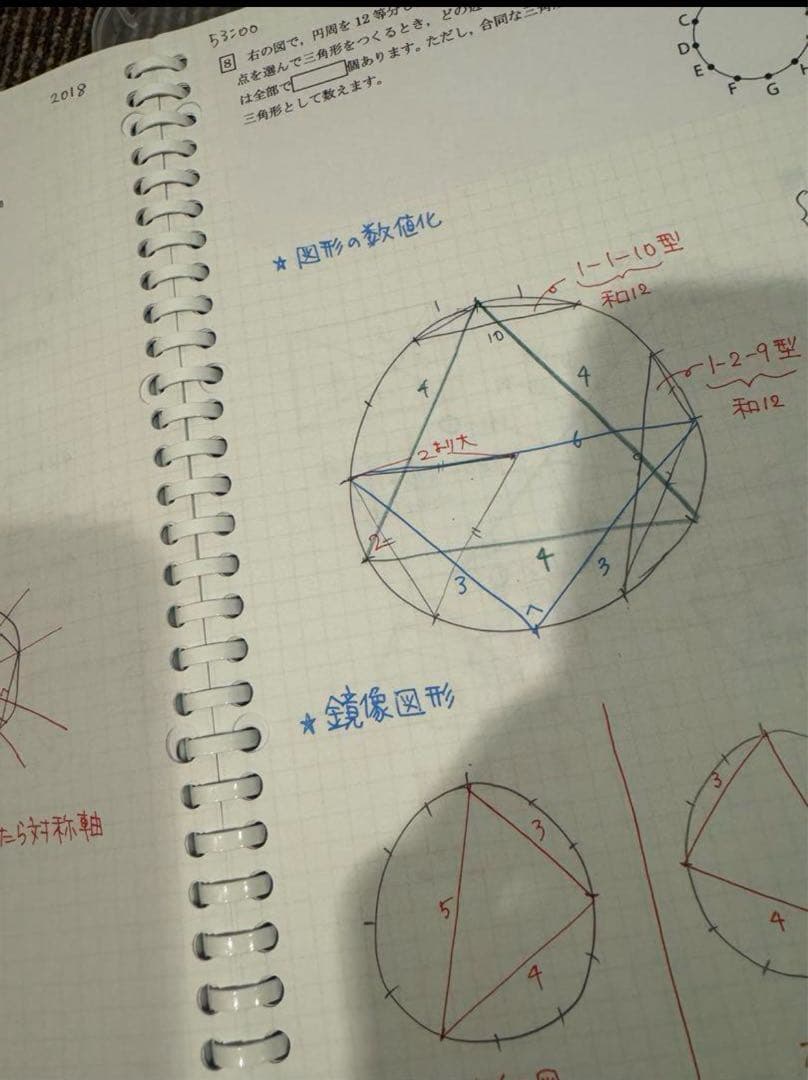 2018
53:00
8 右の図で，円周を12等分し
点を選んで三角形をつくるとき，どの
は全部で 個あります。ただし，合同な三角
三角形として数えます。
C
D
E
F
G
H
★ 図形の数値化
1
1
1-1-10型
和12
10
1-2-9型
和12
4
4
2より大
6
2
4
3
3
★ 鏡像図形
たら対称軸
3
5
4
3
4